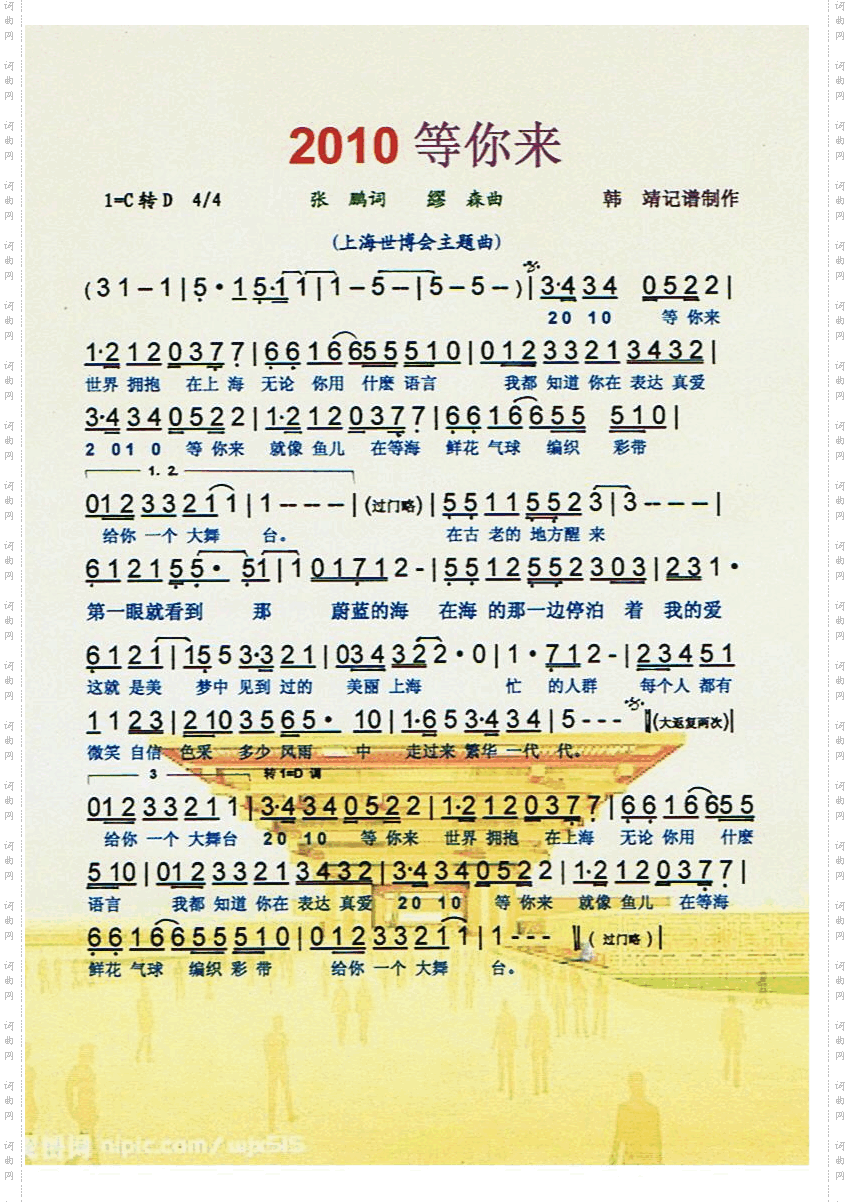 2010 等你来
1=C 转 D 4/4 张 鹏词 缪 森曲 韩 靖记谱制作
(上海世博会主题曲)
( 3 1 – 1 | 5 · 1 5·1 1 | 1 – 5 – | 5 – 5 – ) | 3·4 3 4 0 5 2 2 |
20 10 等 你来
1·2 1 2 0 3 7 7 | 6 6 1 6 6 5 5 5 1 0 | 0 1 2 3 3 2 1 3 4 3 2 |
世界 拥抱 在上 海 无论 你用 什麽 语言 我都 知道 你在 表达 真爱
3·4 3 4 0 5 2 2 | 1·2 1 2 0 3 7 7 | 6 6 1 6 6 5 5 5 1 0 |
2 01 0 等 你来 就像 鱼儿 在等海 鲜花 气球 编织 彩带
1. 2.
0 1 2 3 3 2 1 1 | 1 - - - | (过门略) | 5 5 1 1 5 5 2 3 | 3 - - - |
给你 一个 大舞 台。 在古 老的 地方醒 来
6 1 2 1 5 5 · 5 1 | 1 0 1 7 1 2 - | 5 5 1 2 5 5 2 3 0 3 | 2 3 1 ·
第一眼就看到 那 蔚蓝的海 在海 的那一边停泊 着 我的爱
6 1 2 1 | 1 5 5 3·3 2 1 | 0 3 4 3 2 2 · 0 | 1 · 7 1 2 - | 2 3 4 5 1
这就 是美 梦中 见到 过的 美丽 上海 忙 的人群 每个人 都有
1 1 2 3 | 2 1 0 3 5 6 5 · 1 0 | 1·6 5 3·4 3 4 | 5 - - - ‖ (大返复两次) |
微笑 自信 色采 多少 风雨 中 走过来 繁华 一代 代。
3 转 1=D 调
0 1 2 3 3 2 1 1 | 3·4 3 4 0 5 2 2 | 1·2 1 2 0 3 7 7 | 6 6 1 6 6 5 5
给你 一个 大舞台 20 10 等 你来 世界 拥抱 在上海 无论 你用 什麽
5 1 0 | 0 1 2 3 3 2 1 3 4 3 2 | 3·4 3 4 0 5 2 2 | 1·2 1 2 0 3 7 7 |
语言 我都 知道 你在 表达 真爱 20 10 等 你来 就像 鱼儿 在等海
6 6 1 6 6 5 5 5 1 0 | 0 1 2 3 3 2 1 1 | 1 - - - ‖ ( 过门略 ) |
鲜花 气球 编织 彩 带 给你 一个 大舞 台。
nipic.com/wjx515
词曲网